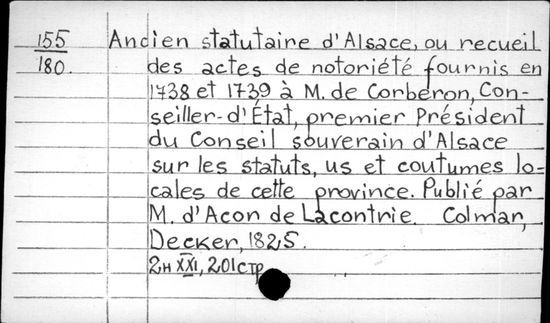 155 Ancien statutaire d'Alsace, ou recueil
180. des actes de notoriété fournis en
1738 et 1739 à M. de Corberon, Con-
seiller-d'État, premier Président
du Conseil souverain d'Alsace
sur les statuts, us et coutumes lo-
cales de cette province. Publié par
M. d'Acon de Lacontrie. Colmar,
Decker, 1825.
2н XXI, 201 стр